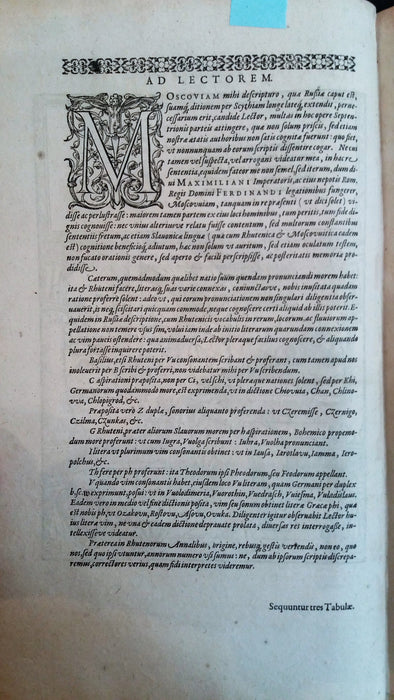 AD LECTOREM.
MOSCOVIAM mihi descripturo, quæ Rußiæ caput est,
suamq́; ditionem per Scythiam longe lateq́; extendit, perne-
cessarium erit, candide Lector, multas in hoc opere Septen-
trionis parteis attingere, quæ non solum priscis, sed etiam
nostræ ætatis authoribus non satis cognitæ fuerunt: quo fiet,
ut nonnunquam ab eorum scriptis dissentire cogar. Ne ui
tamen vel suspecta, vel arrogans videatur mea, in hac re
sententia, equidem fateor me non semel, sed iterum, dum di-
ui MAXIMILIANI Imperatoris, ac eius nepotis Rom.
Regis Domini FERDINANDI legationibus fungerer,
Moscouiam, tanquam in præsenti (ut dici solet) vi-
disse ac perlustrasse: maiorem tamen partem ex eius loci hominibus, tum peritis, tum fide di-
gnis cognouisse: nec vnius alteriusve relatu fuisse contentum, sed multorum constantibus
sententiis fretum, ac etiam Slauonicæ linguæ (quæ cum Rhutenica & Moscovvitica eadem
est) cognitione beneficioq́; adiutum, hæc non solum vt auritum, sed etiam oculatum testem,
non fucato orationis genere, sed aperto & facili perscripsisse, ac posteritatis memoriæ prodi-
didisse.
Cæterum, quemadmodum quælibet natio suum quendam pronunciandi morem habet:
ita & Rhuteni facere, literasq́; suas varie connexas, coniunctasve, nobis inusitata quadam
ratione proferre solent: adeo vt, qui eorum pronunciationem non singulari diligentia obser-
uauerit, is neq; sciscitari quicquam commode, neque cognoscere certi aliquid ab illis poterit. E-
quidem in Rußiæ descriptione, cum Rhutenicis vocabulis in rerum, locorum, ac fluuiorum ap-
pellatione non temere vsus sim, volui iam inde ab initio literarum quarundam connexionem
ac vim paucis ostendere: qua animaduersa, Lector pleraque facilius cognoscere, & aliquando
plura fortasse inquirere poterit.
Basilius, etsi Rhuteni per Vu consonantem scribant & proferant, cum tamen apud nos
inoleuerit per B scribi & proferri, non videbatur mihi per Vu scribendum.
C aspirationi præposita, non per Ci, vel schi, vt pleræque nationes solent, sed per Khi,
Germanorum quodammodo more, est exprimenda, vt in dictione Chiovuia, Chan, Chlino-
vua, Chlopigrod, &c.
Præposita vero Z duplæ, sonorius aliquanto proferenda: vt Czeremisse, Czernigo,
Czilma, Czunkas, &c.
G Rhuteni, præter aliorum Slauorum morem per h aspirationem, Bohemico propemo-
dum more proferunt: vt cum Iugra, Vuolga scribunt: Iuhra, Vuolha pronunciant.
I litera vt plurimum vim consonantis obtinet: vt in Iausa, Iaroslavu, Iamma, Iero-
polchus, &c.
Th fere per ph proferunt: ita Theodorum ipsi Pheodorum, seu Feodorum appellant.
V quando vim consonantis habet, eius dem loco Vu literam, quam Germani per duplex
b, sc. vv exprimunt, posui: vt in Vuolodimeria, Vuorothin, Vuedrasch, Vuiesma, Vuladislaus.
Eadem vero in medio vel fine dictionis posita, vim seu sonum obtinet literæ Græcæ phi, quæ
est nobis ph, vt Ozakovu, Rostovu, Asovu, Ovuka. Diligenter igitur obseruabis Lector hu-
ius literæ vim, ne vna & eadem dictione depravate prolata, diuersas res interrogasse, in-
tellexisseve videatur.
Præterea in Rhutenorum Annalibus, origine, rebusq́; gestis vertendis, non eo, quo
nos, sed quo ipsi vtuntur, annorum numero vsi sumus: ne, dum ab ipsorum scriptis discrepa-
remus, correctores verius, quam fidi interpretes videremur.
Sequuntur tres Tabulæ.